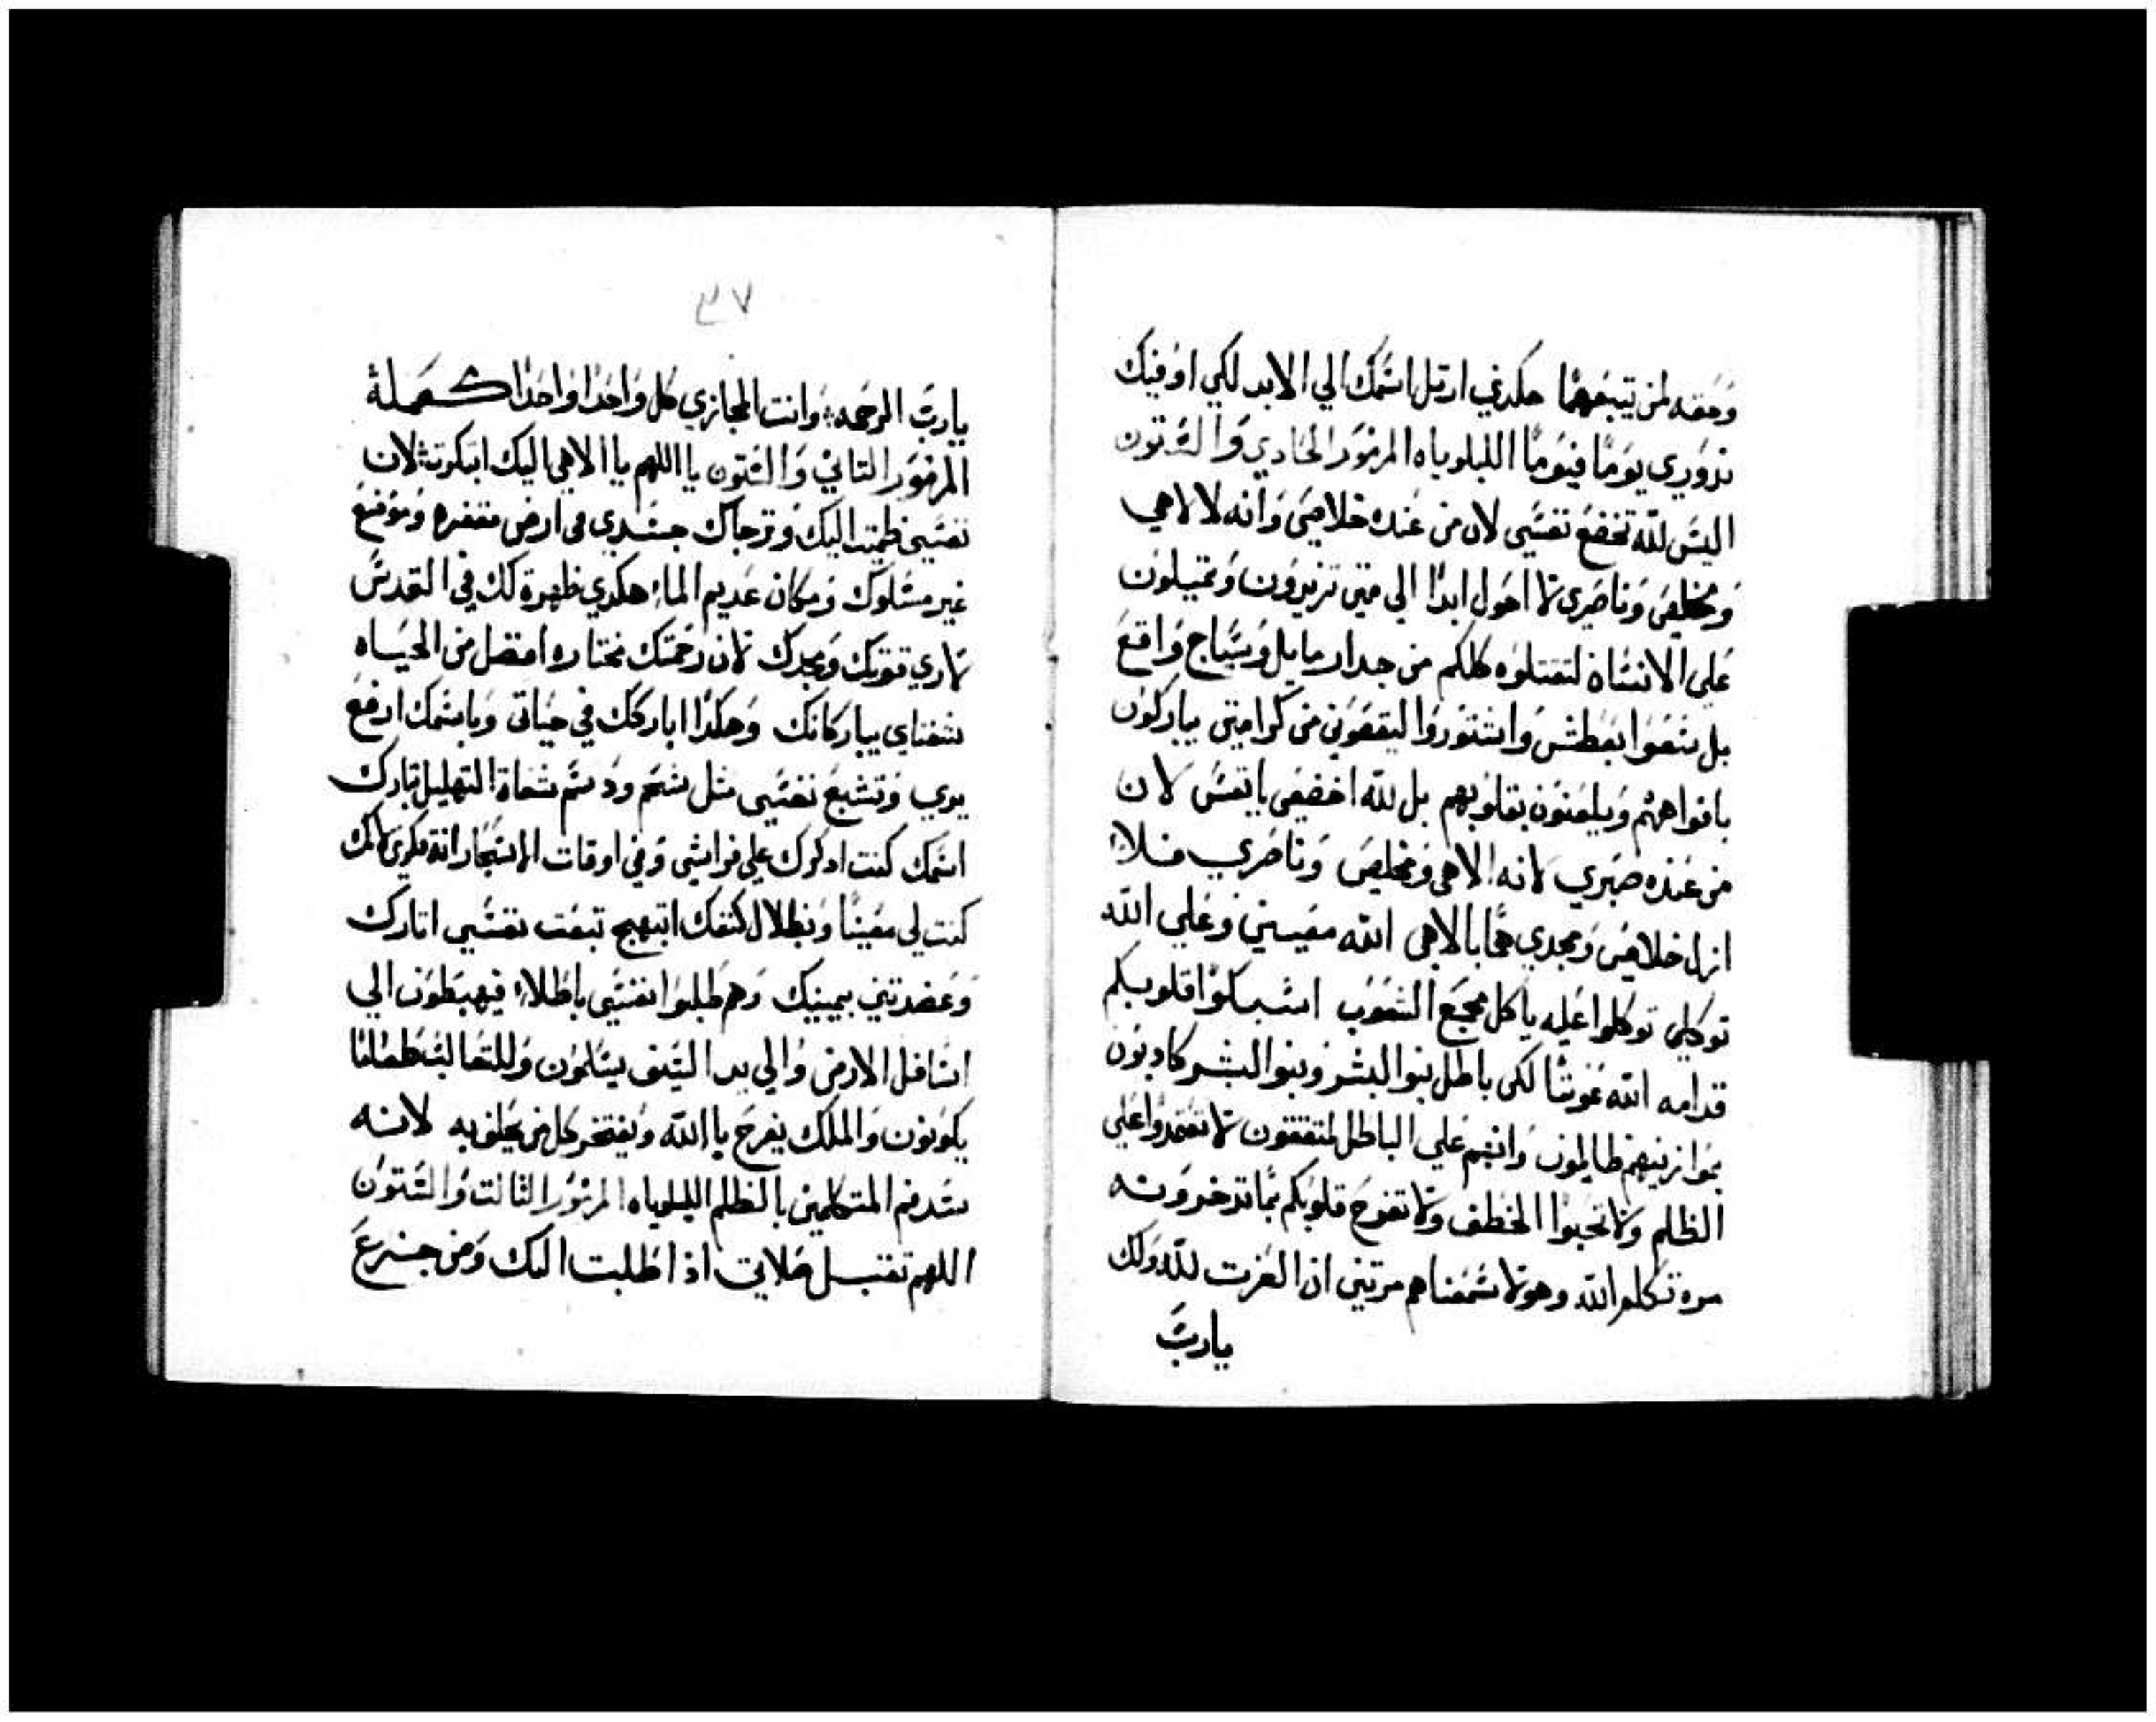 وحقه لمن يتبعهما هكدي ارتل اسمك الي الابد لكي اوفيك
ندوري يوما فيوما الليلوياه المزمور الحادي والستون
اليس لله تخضع نفسي لان من عنده خلاصي وانه لالاهي
ومخلصي وناصري لا احول ابدا الي متي تزيدون وتميلون
علي الانسان لتقتلوه كلكم من جدار مايل وسياج واقع
بل سعوا بعطش واشتوروا ليقصوني من كرامتي يباركون
بافواههم ويلعنون بقلوبهم بل لله اخضعي يا نفسي لان
من عنده صبري لانه الاهي ومخلصي وناصري فلا
ازل خلاصي ومجدي هما بالاهي الله معيني وعلي الله
توكلي توكلوا عليه يا كل مجمع الشعوب اسبكوا قلوبكم
قدامه الله عوننا لكن باطل بنوا البشر وبنوا البشر كادبون
بموازينهم ظالمون وانهم علي الباطل لمتفقون لا تعتمدوا علي
الظلم ولا تحبوا الخطف ولا تفرح قلوبكم بما تدخرونه
مره تكلم الله وهولا سمعناهم مرتين ان العزت لله ولك
يارب
٣٧
يارب الرحمه وانت المجازي كل واحدا واحدا كعمله
المزمور التاني والستون يا اللهم يا الاهي اليك ابتكرت لان
نفسي ظميت اليك وترجاك جسدي في ارض مقفره وموضع
غير مسلوك ومكان عديم الماء هكدي ظهرة لك في القدس
لاري قوتك ومجدك لان رحمتك مختاره افضل من الحياه
شفتاي يباركانك وهكدا اباركك في حياتي وباسمك ارفع
يدي وتشبع نفسي مثل شحم ودسم شفاة التهليل تبارك
اسمك كنت ادكرك علي فراشي وفي اوقات الاسحار انة فكري لانك
كنت لي معينا وبظلال كنفك ابتهج تبعت نفسي اتارك
وعضدتني بيمينك وهم طلبوا نفسي باطلا فيهبطون الي
اسافل الارض والي يد السيف يسلمون وللتعالب طعاما
يكونون والملك يفرح باالله ويفتخر كل من يحلف به لانه
سد فم المتكلمين بالظلم الليلوياه المزمور التالت والستون
اللهم تقبل صلاتي اذا طلبت اليك ومن جزع